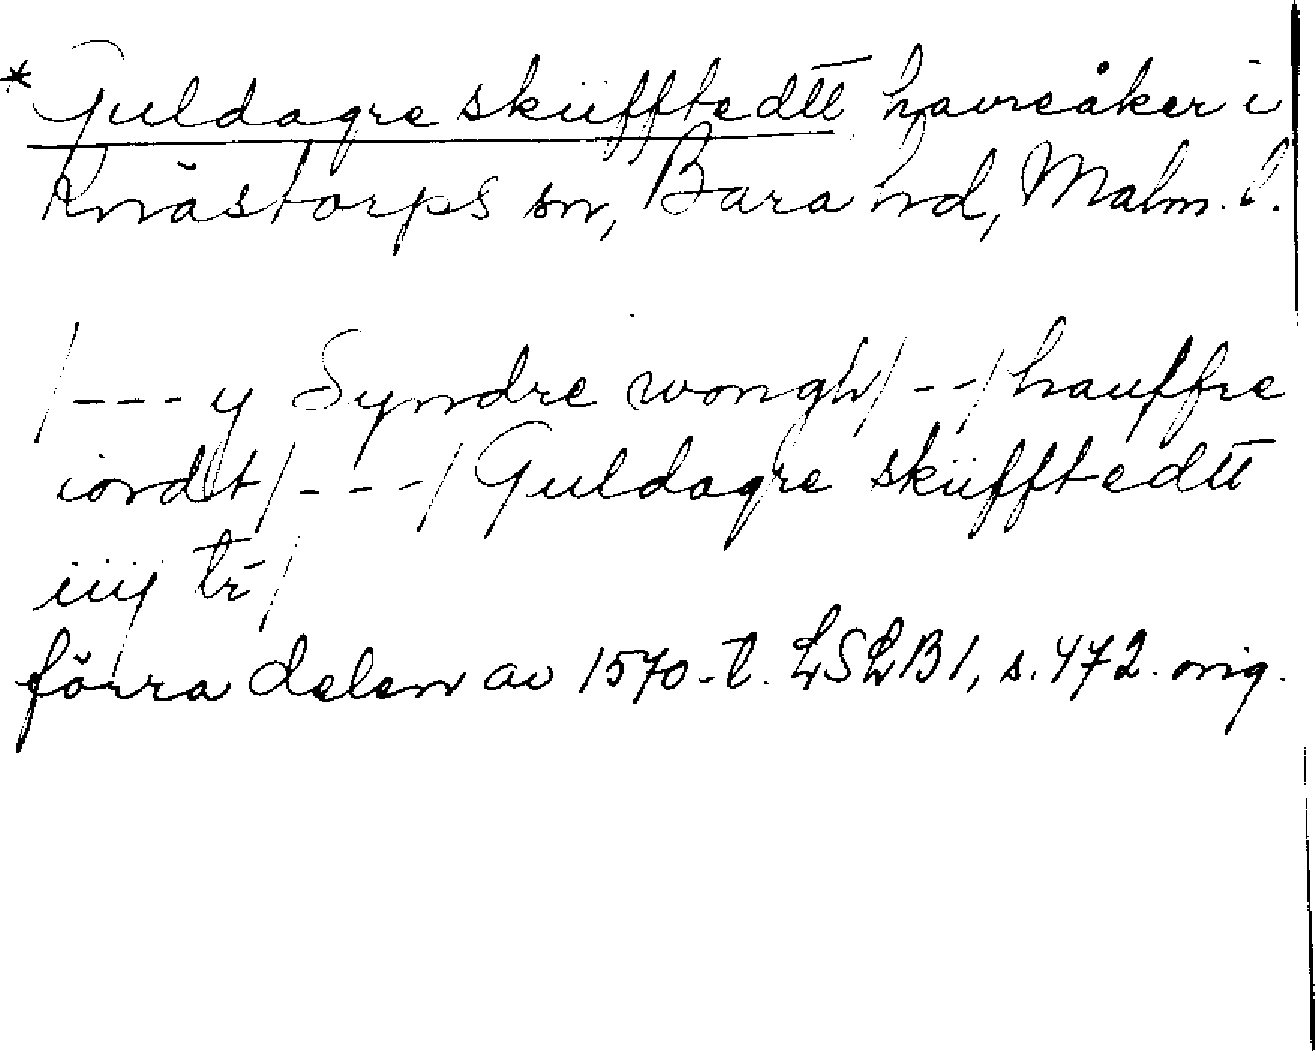 *Guldagre skiifftedtt havreåker i
Knästorps sn, Bara hd, Malm. l.
/---y Syndre wongh/--/hauffre
iordt/---/Guldagre skiifftedtt
iiij tr/
förra delen av 1570-t. LSLB1, s.472. orig.